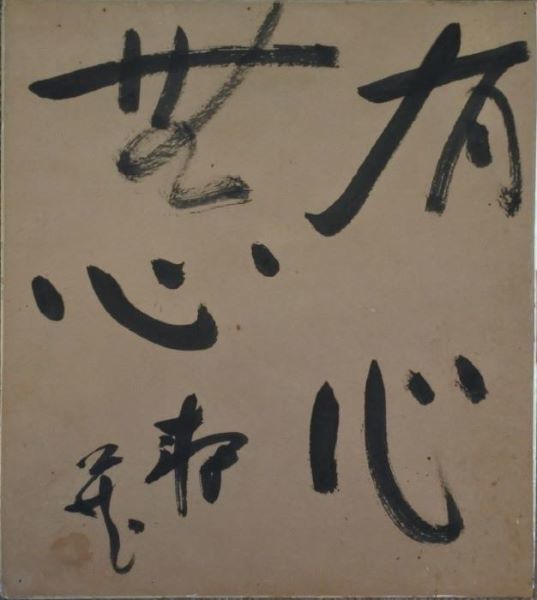 有心
無心